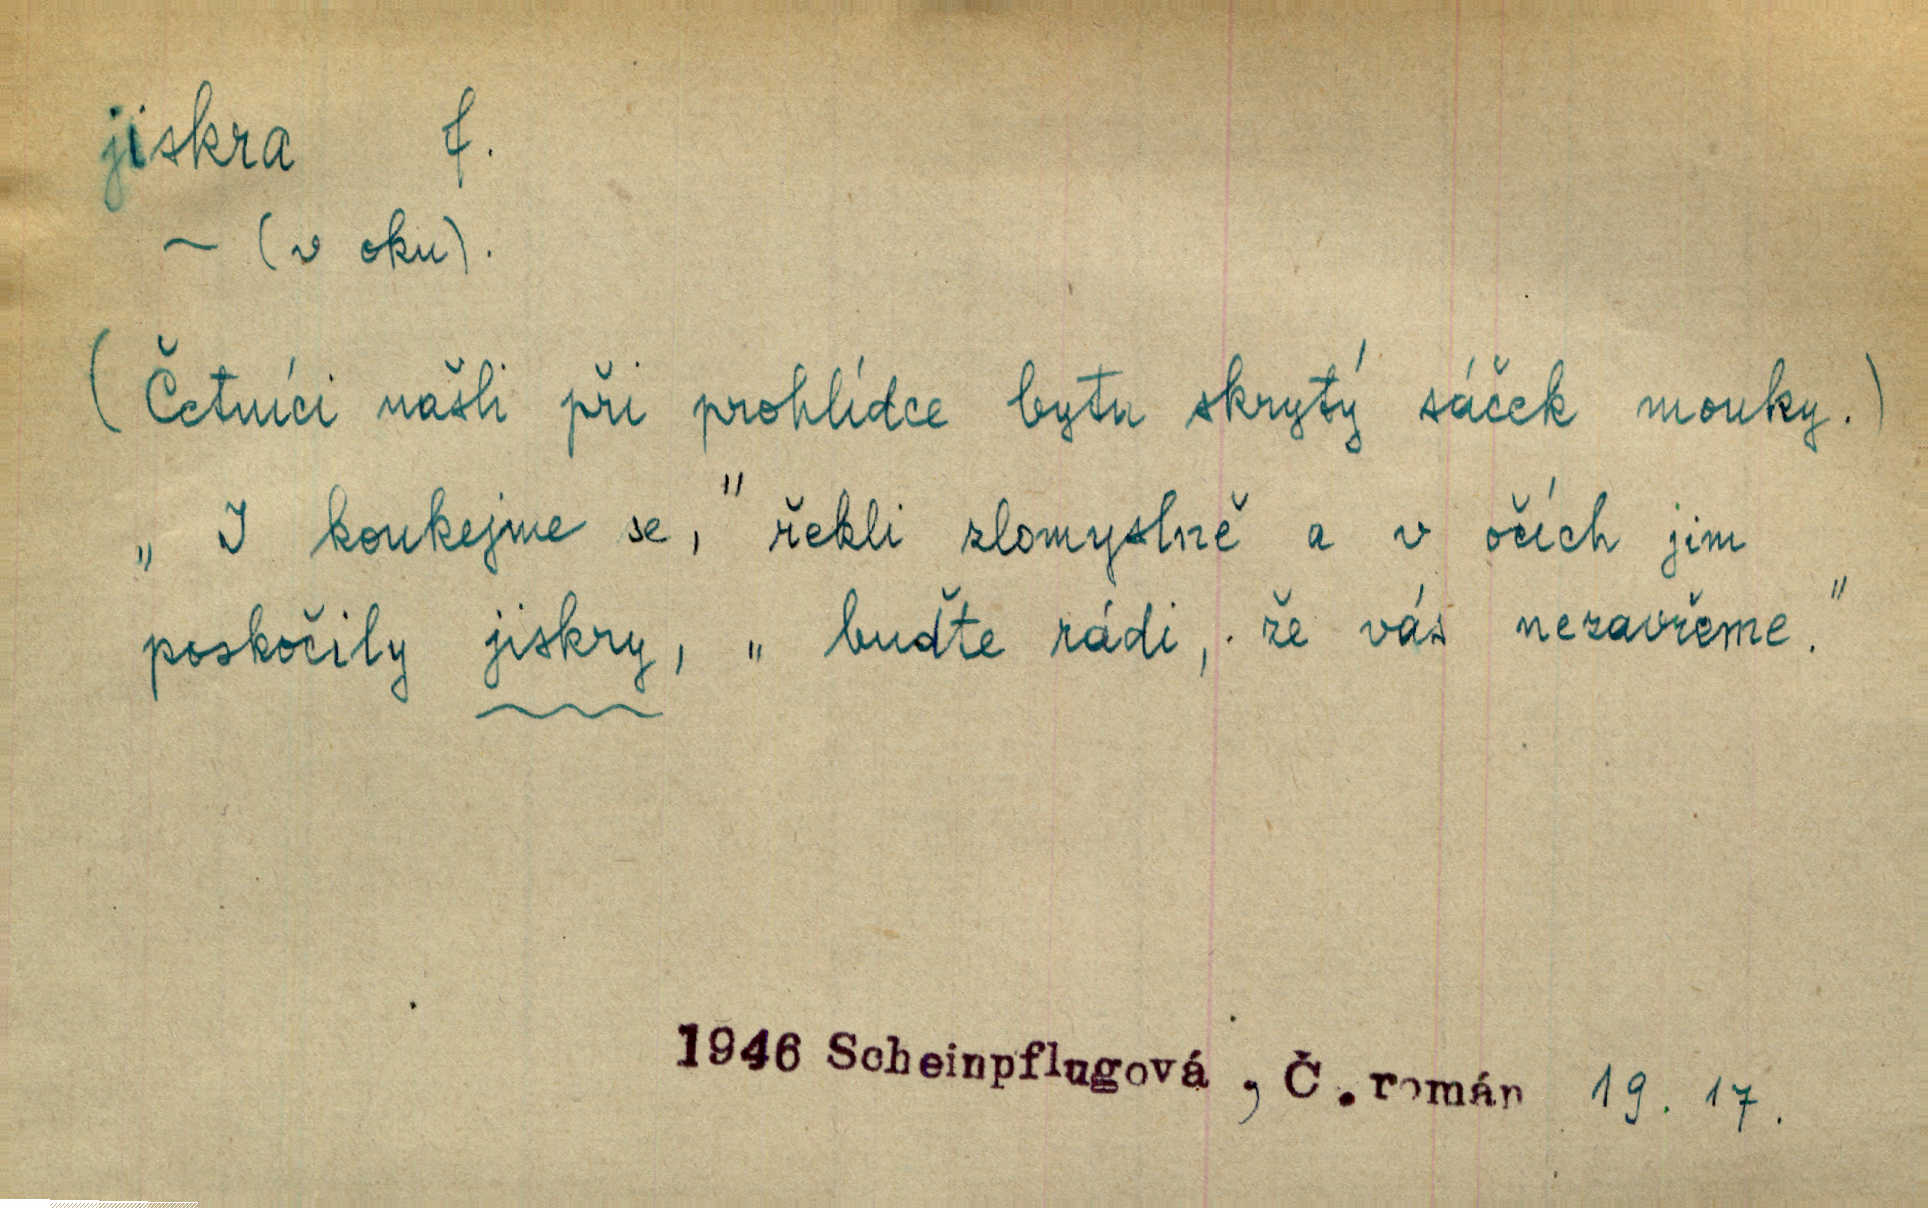 jiskra f.
~ (v oku).
(Četníci našli při prohlídce bytu skrytý sáček mouky.)
„I koukejme se," řekli zlomyslně a v očích jim
poskočily jiskry, „buďte rádi, že vás nezavřeme."
1946 Scheinpflugová, Č.román 19. 17.